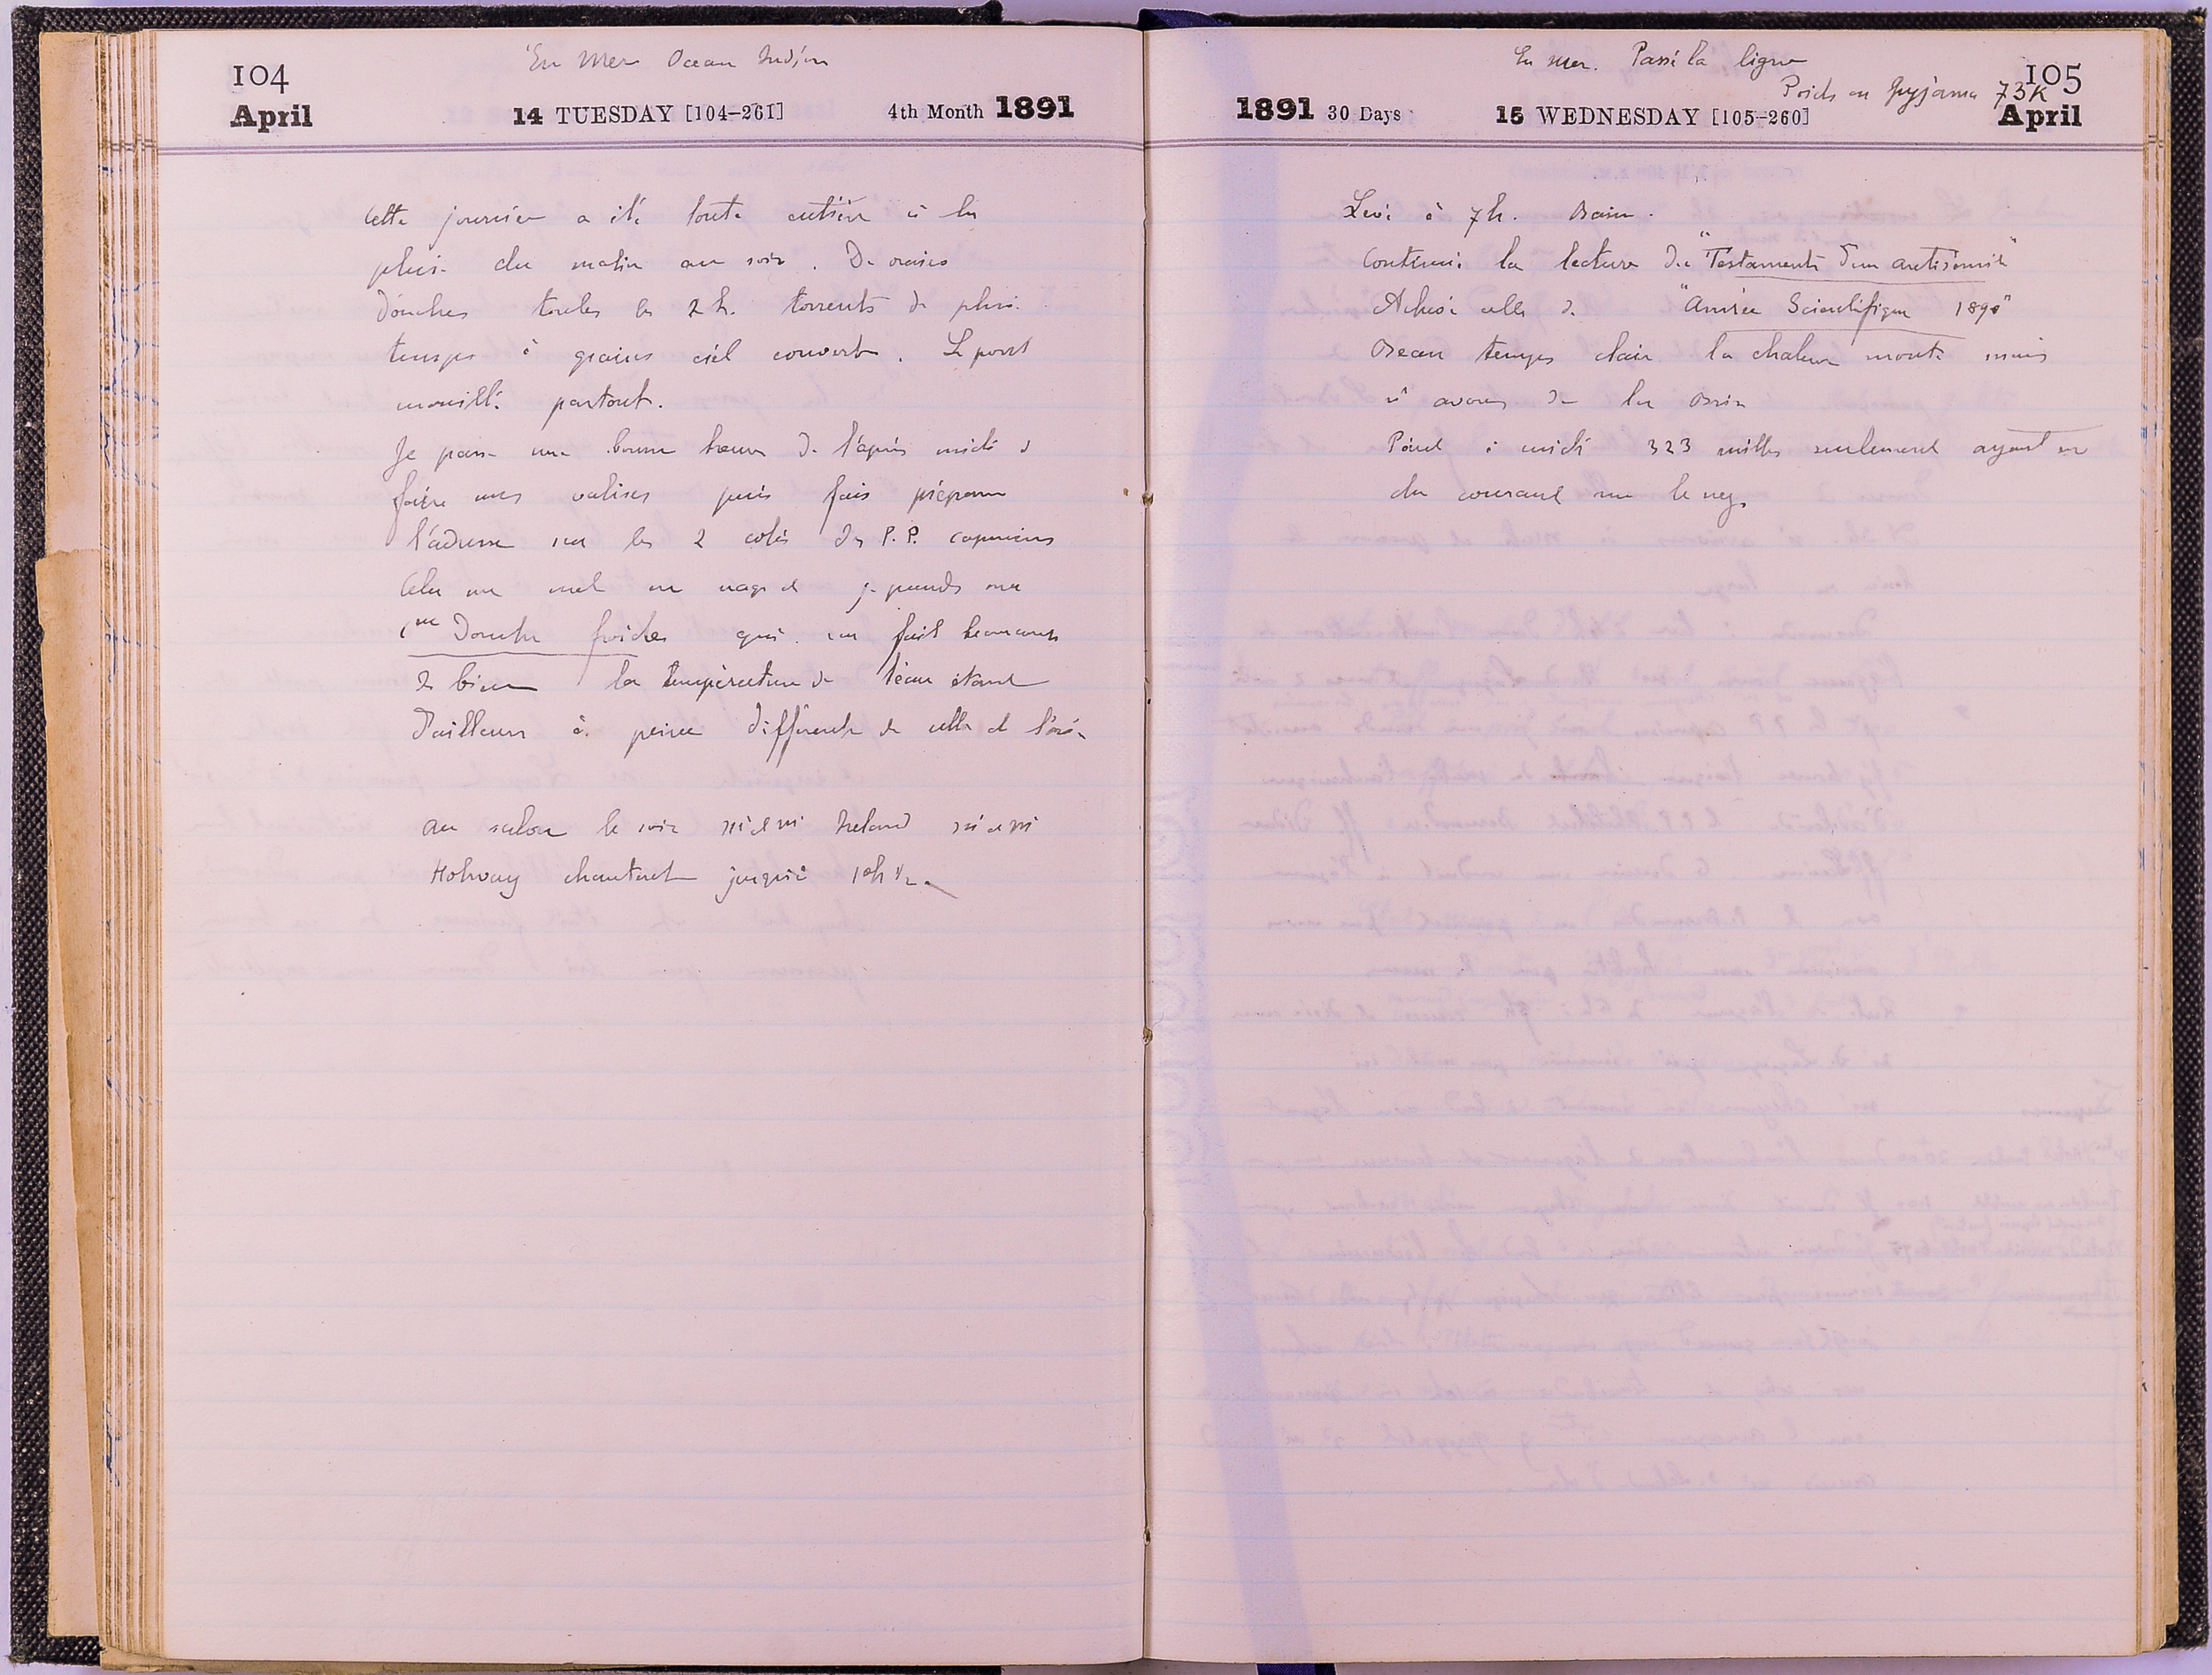 En Mer Ocean Indien
104
April
14 TUESDAY [104-261]
4th Month 1891
Cette journée a été toute entière à la
pluie du matin au soir. De vraies
Douches toutes les 2 h. torrents de pluie
temps à grains ciel couvert. Le pont
mouillé partout.
Je passe une bonne heure de l'après midi à
faire mes valises puis fais préparer
l'adresse sur les 2 colis des P.P. capucins
Cela me met en nage et je prends ma
1ère Douche froide qui me fait beaucoup
de bien la température de l'eau étant
D'ailleurs à peine différente de celle de
Au salon le soir Ireland
Holway chantent jusqu'à 10h 1/2
En mer. Passé la ligne
Poids en pyjama 73K
105
1891 30 Days
15 WEDNESDAY [105-260]
April
Levé à 7h. Bain.
Continué la lecture du "Testament d'un antisémite"
Achevé celle de "Année Scientifique 1890"
Beau temps clair la chaleur monte mais
ns avons de la brise
Point à midi 323 milles seulement ayant eu
du courant sur le nez.